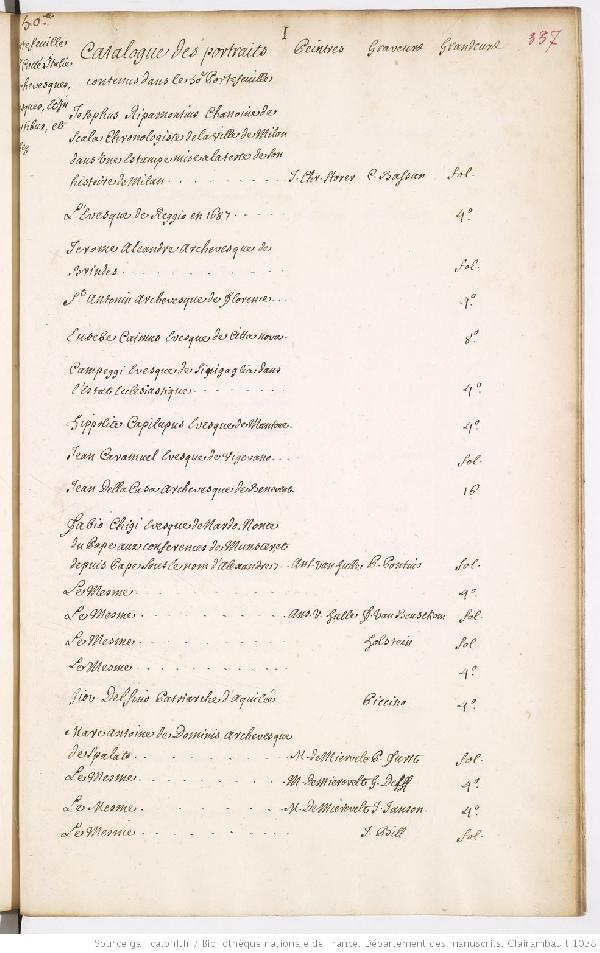 50.me
I
337
Catalogue des portraits Peintres Graveurs Grandeurs
contenus dans le 50e Portefeuille
Josephus Ripamontius Chanoine de
Scala Chronologiste de la ville de Milan
dans une Estampe mise a la teste de son
histoire de Milan . . . . . . . . J. Chr. Storer C. Bassan fol.
L'Evesque de Reggio en 1687 . . . . . 4.o
Jerome Aleandre Archevesque de
Brindes . . . . . . . . . fol.
St. Antonin Archevesque de Florence . . . 4.o
Eusebe Caimus Evesque de Citta nova . 8.o
Campeggi Evesque de Sinigaglia dans
l'Estat Ecclesiastique . . . . . . 4.o
Hippolite Capilupus Evesque de Mantoue . 4.o
Jean Caramuel Evesque de Vigevano . . . fol.
Jean Della Casa Archevesque de Benevent. 16
Fabio Chigi Evesque de Nardo, Nonce
du Pape aux conferences de Munster et
depuis Pape sous le nom d'Alexandre 7 . . Ant. van hulle P. Pontius fol.
Le Mesme . . . . . . . . 4.o
Le Mesme . . . . . . . . Ans. V. hulle J. Van Benselkom fol.
Le Mesme . . . . . . . . holstein fol
Le Mesme . . . . . . . . 4.o
Giov Delfino Patriarche d'Aquilée Piccino 4.o
Marc Antoine de Dominis Archevesque
de Spalato . . . . . . . . M. de Mierevelt fol.
Le Mesme . . . . . . . . M. de Mierevelt G. Delff 4.o
Le Mesme . . . . . . . . M. De Mierevelt J. Janson. 4.o
Le Mesme . . . . . . . . J. Bill fol.
Source gallica.bnf.fr / Bibliothèque nationale de France. Département des manuscrits. Clairambault 1038